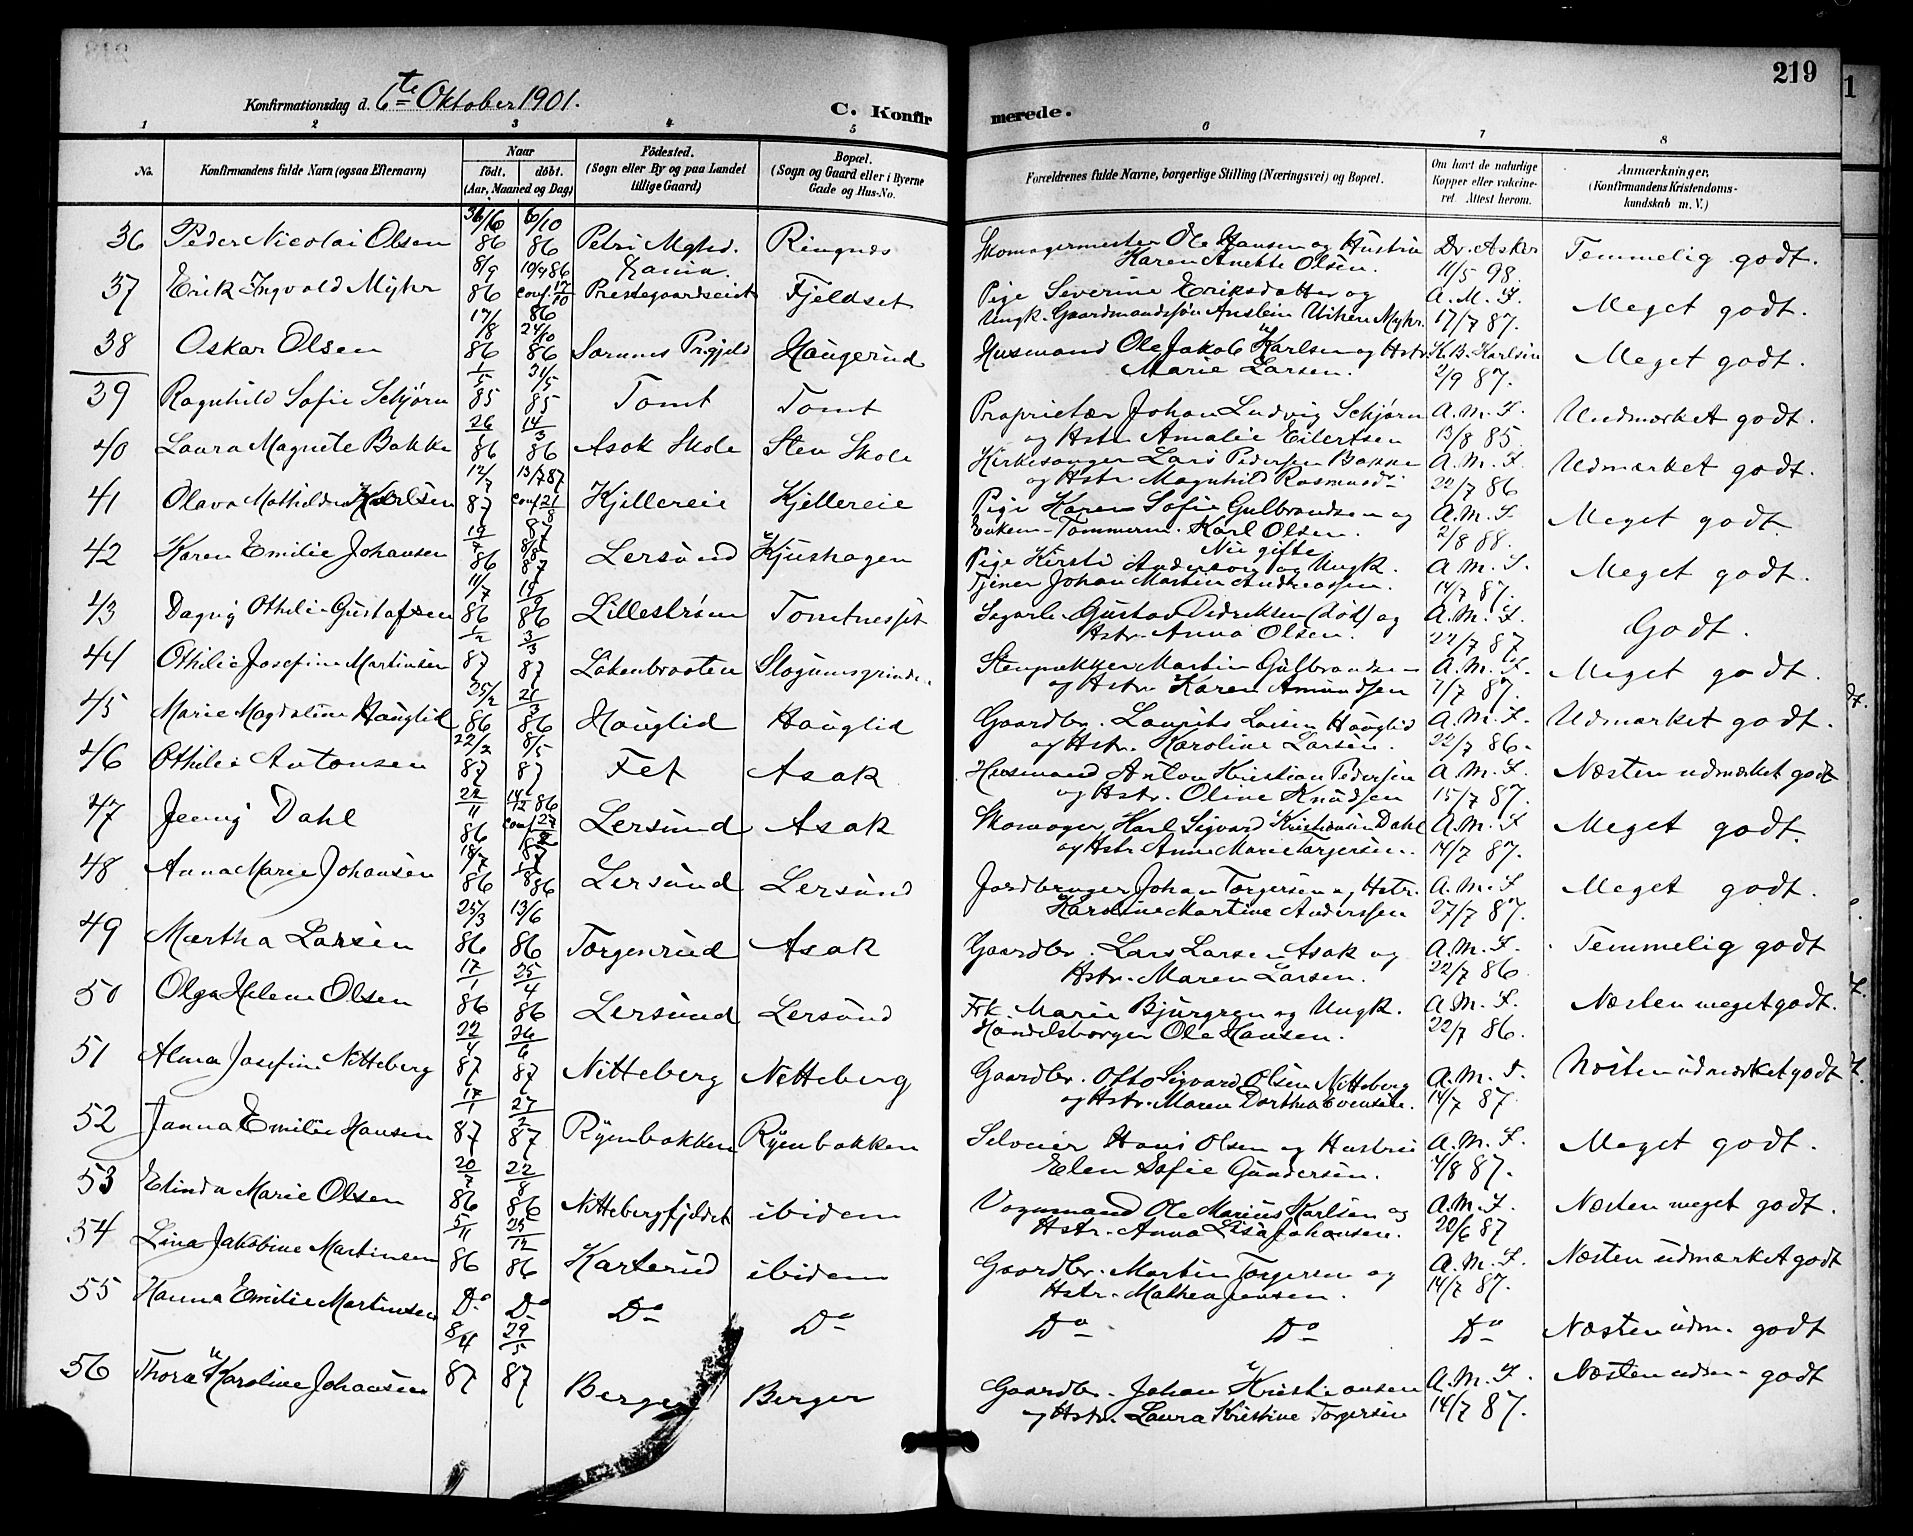 219
Konfirmationsdag d. 6te Oktober 1901.
C. Konfirmerede.
1 2 3 4 5 6 7 8
No.
Konfirmandens fulde Navn (ogsaa Efternavn)
Naar
födt. döbt.
(Aar, Maaned og Dag)
Födested.
(Sogn eller By og paa Landet tillige Gaard)
Bopæl.
(Sogn og Gaard eller i Byerne Gade og Hus-No.
Forældrenes fulde Navne, borgerlige Stilling (Næringsvei) og Bopæl.
Om havt de naturlige Kopper eller vakcineret. Attest herom.
Anmærkninger.
(Konfirmandens Kristendomskundskab m. V.)
36 Peder Nicolai Olsen 86 6/10 86 Petri Mghd. Ringnes Skomagermester Ole Hansen og Hustru Dr. Asker Temmelig godt.
Karen Anette Olsen. 11/5 98.
37 Erik Ingvald Myhr 8/9 86 10/9 86 conf. 17/10 86 Fjeldset Pige Severine Eriksdatter og A. M. F. Meget godt.
Ungk. Gaardmandssøn Myhr. 17/7 87.
38 Oskar Olsen 17/8 86 24/10 86 Sørum Prgjeld Haugerud Husmand Ole Jakob Karlsen og Hstr. K. B. Karlsen Meget godt.
Marie Larsen. 2/9 87.
39 Ragnhild Sofie Schjørn 1/5 85 31/5 85 Tomt Tomt Proprietær Johan Ludvig Schjørn A. M. F. Udmærket godt.
og Hstr. Amalie Eilertsen 13/8 85.
40 Laura Magnete Bakke 86 14/3 86 Asak Skole Sten Skole Kirkesanger Lars Pedersen Bakke A. M. F. Udmærket godt.
og Hstr. Magnhild Rasmusd. 22/7 86
41 Olava Mathilde Karlsen 12/7 87 13/7 87 conf. 21/8 87 Kjellereie Kjellereie Pige Karen Sofie Gulbrandsen og A. M. F. Meget godt.
Enkem. Tømmerm. Karl Olsen. 2/8 88.
Nu gifte
42 Karen Emilie Johansen 86 87 Lersund Kjushagen Pige Kirsti Anderson og Ungk. A. M. F. Meget godt.
Tjener Johan Martin Andreassen. 14/7 87.
43 Dagny Othilie Gustafsen 11/7 86 86 Lillestrøm Tomtnesset Sagarb. Gustav Didriksen og A. M. F. Godt.
Hstr. Anna Olsen. 22/7 87
44 Othilie Josefine Martinsen 1/2 87 3/3 87 Lakenbraaten Stenpukker Martin Gulbrandsen A. M. F. Meget godt.
og Hstr. Karen Amundsen 7/7 87.
45 Marie Magdaline Hauglid 25/2 86 21/3 86 Hauglid Hauglid Gaardbr. Laurits Larsen Hauglid A. M. F. Udmærket godt.
og Hstr. Karoline Larsen. 22/7 86.
46 Othilie Antonsen 22/2 87 8/5 87 Fet Asak Husmand Anton Kristian Pedersen A. M. F. Næsten udmærket godt
og Hstr. Oline Knudsen 15/7 87.
47 Jenny Dahl 22/11 86 14/12 86 conf. 27/2 87 Lersund Asak Skomager Karl Sigvard Kristiansen Dahl A. M. F. Meget godt.
og Hstr. Anne Marie Torgersen. 14/7 87.
48 Anna Marie Johansen 86 86 Lersund Lersund Jordbruger Johan Torgersen og Hstr. A. M. F. Meget godt.
Karoline Martine Anderssen 27/7 87.
49 Martha Larsen 25/3 86 13/6 86 Torgenrud Asak Gaardbr. Lars Larsen Asak og A. M. F. Temmelig godt
Hstr. Maren Larsen. 22/7 86.
50 Olga Helene Olsen 17/1 86 25/4 86 Lersund Lersund Frk. Marie Bjurgren og Ungk. A. M. F. Næsten meget godt.
Handelsborger Ole Hansen. 22/7 86.
51 Alma Josefine Nitteberg 22/4 87 26/6 87 Nitteberg Nitteberg Gaardbr. Otto Sigvard Olsen Nitteberg A. M. F. Næsten udmærket godt
og Hstr. Maren Dorthea Evensen. 14/7 87.
52 Janna Emilie Hansen 17/1 87 27/2 87 Rÿenbakken Rÿenbakken Selveier Hans Olsen og Hustru A. M. F. Meget godt.
Elen Sofie Gundersen. 4/8 87.
53 Elinda Marie Olsen 20/7 86 22/8 86 Nittebergfjeldet ibidem Vognmand Ole Marius Karlsen og A. M. F. Næsten meget godt.
Hstr. Anna Lisa Johansen. 20/6 87
54 Lina Jakobine Martinsen 5/11 86 25/12 86 Karterud ibidem Gaardbr. Martin Torgersen og A. M. F. Næsten udmærket godt
Hstr. Mathea Jensen. 14/7 87.
55 Hanna Emilie Martinsen Do Do Do Do Do Do Do Næsten udm. godt
56 Thora Karoline Johansen 8/4 87 29/5 87 Berger Berger Gaardbr. Johan Kristiansen A. M. F. Næsten udm. godt
og Hstr. Laura Kristine Torgersen 14/7 87.